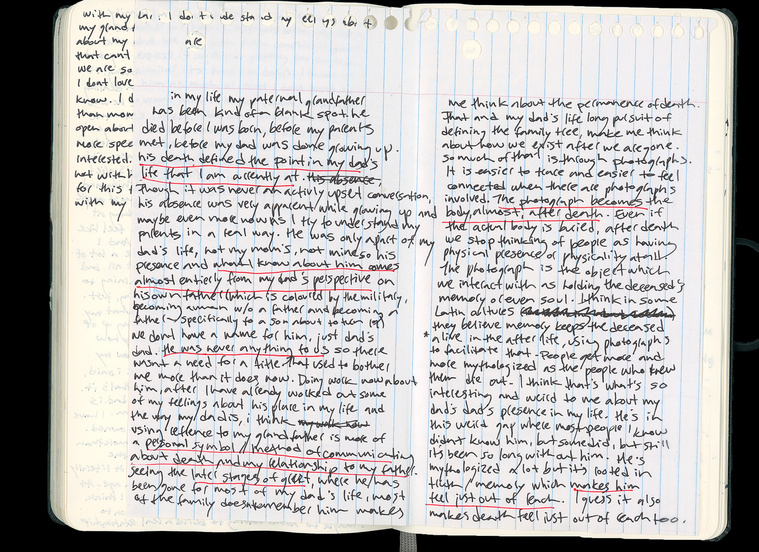 with my
my grand
about my
that cant
we are so
I dont love
know. I d
than mom
open about
more spec
interested.
not with h
for this t
with my
are
in my life my paternal grandfather
has been kind of a blank spot. he
died before I was born, before my parents
met, before my dad was done growing up.
his death defined the point in my dad's
life that I am currently at. this absence,
Though it was never an activly upset conversation,
his absence was very apparent while growing up and
maybe even more now as I try to understand my
parents in a real way. He was only apart of my
dad's life, not my mom's, not mine so his
presence and what I know about him comes
almost entierly from my dad's perspective on
his own father (which is coloured by the military,
becoming a man w/o a father and becoming a
father - specifically to a son about to turn
we dont have a name for him, just dad's
dad. He was never anything to us so there
wasnt a need for a title. That used to bother
me more than it does now. Doing work now about
him, after I have already worked out some
of my feelings about his place in my life and
the way my dad is, i think
using refrence to my grandfather is more of
a personal symbol/method of communicating
about death and my relationship to my father.
seeing the later stages of greif, where he has
been gone for most of my dad's life, most
of the family doesnt remember him makes
me think about the permanence of death.
That and my dad's life long pursuit of
defining the family tree, make me think
about how we exist after we are gone.
so much of that is through photographs.
It is easier to trace and easier to feel
connected when there are photographs
involved. The photograph becomes the
body, almost, after death. Even if
the actual body is buried, after death
we stop thinking of people as having
physical presence or physicality at all.
The photograph is the object which
we interact with as holding the deceased's
memory or even soul. I think in some
Latin cultures
they believe memory keeps the deceased
* alive in the after life, using photographs
to facilitate that. People get more and
more mythologized as the people who knew
them die out. I think that's what's so
interesting and weird to me about my
dad's dad's presence in my life. He's in
this weird gap where most people I know
didn't know him, but some did, but still
its been so long without him. He's
mythologized a lot but it's rooted in
truth/memory which makes him
feel just out of reach. I guess it also
makes death feel just out of reach too.